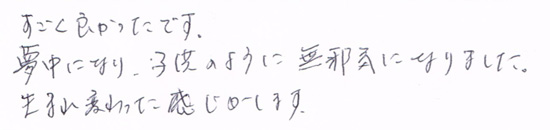 すごく良かったです。
夢中になり、子供のように無邪気になりました。
生まれ変わった感じがします。